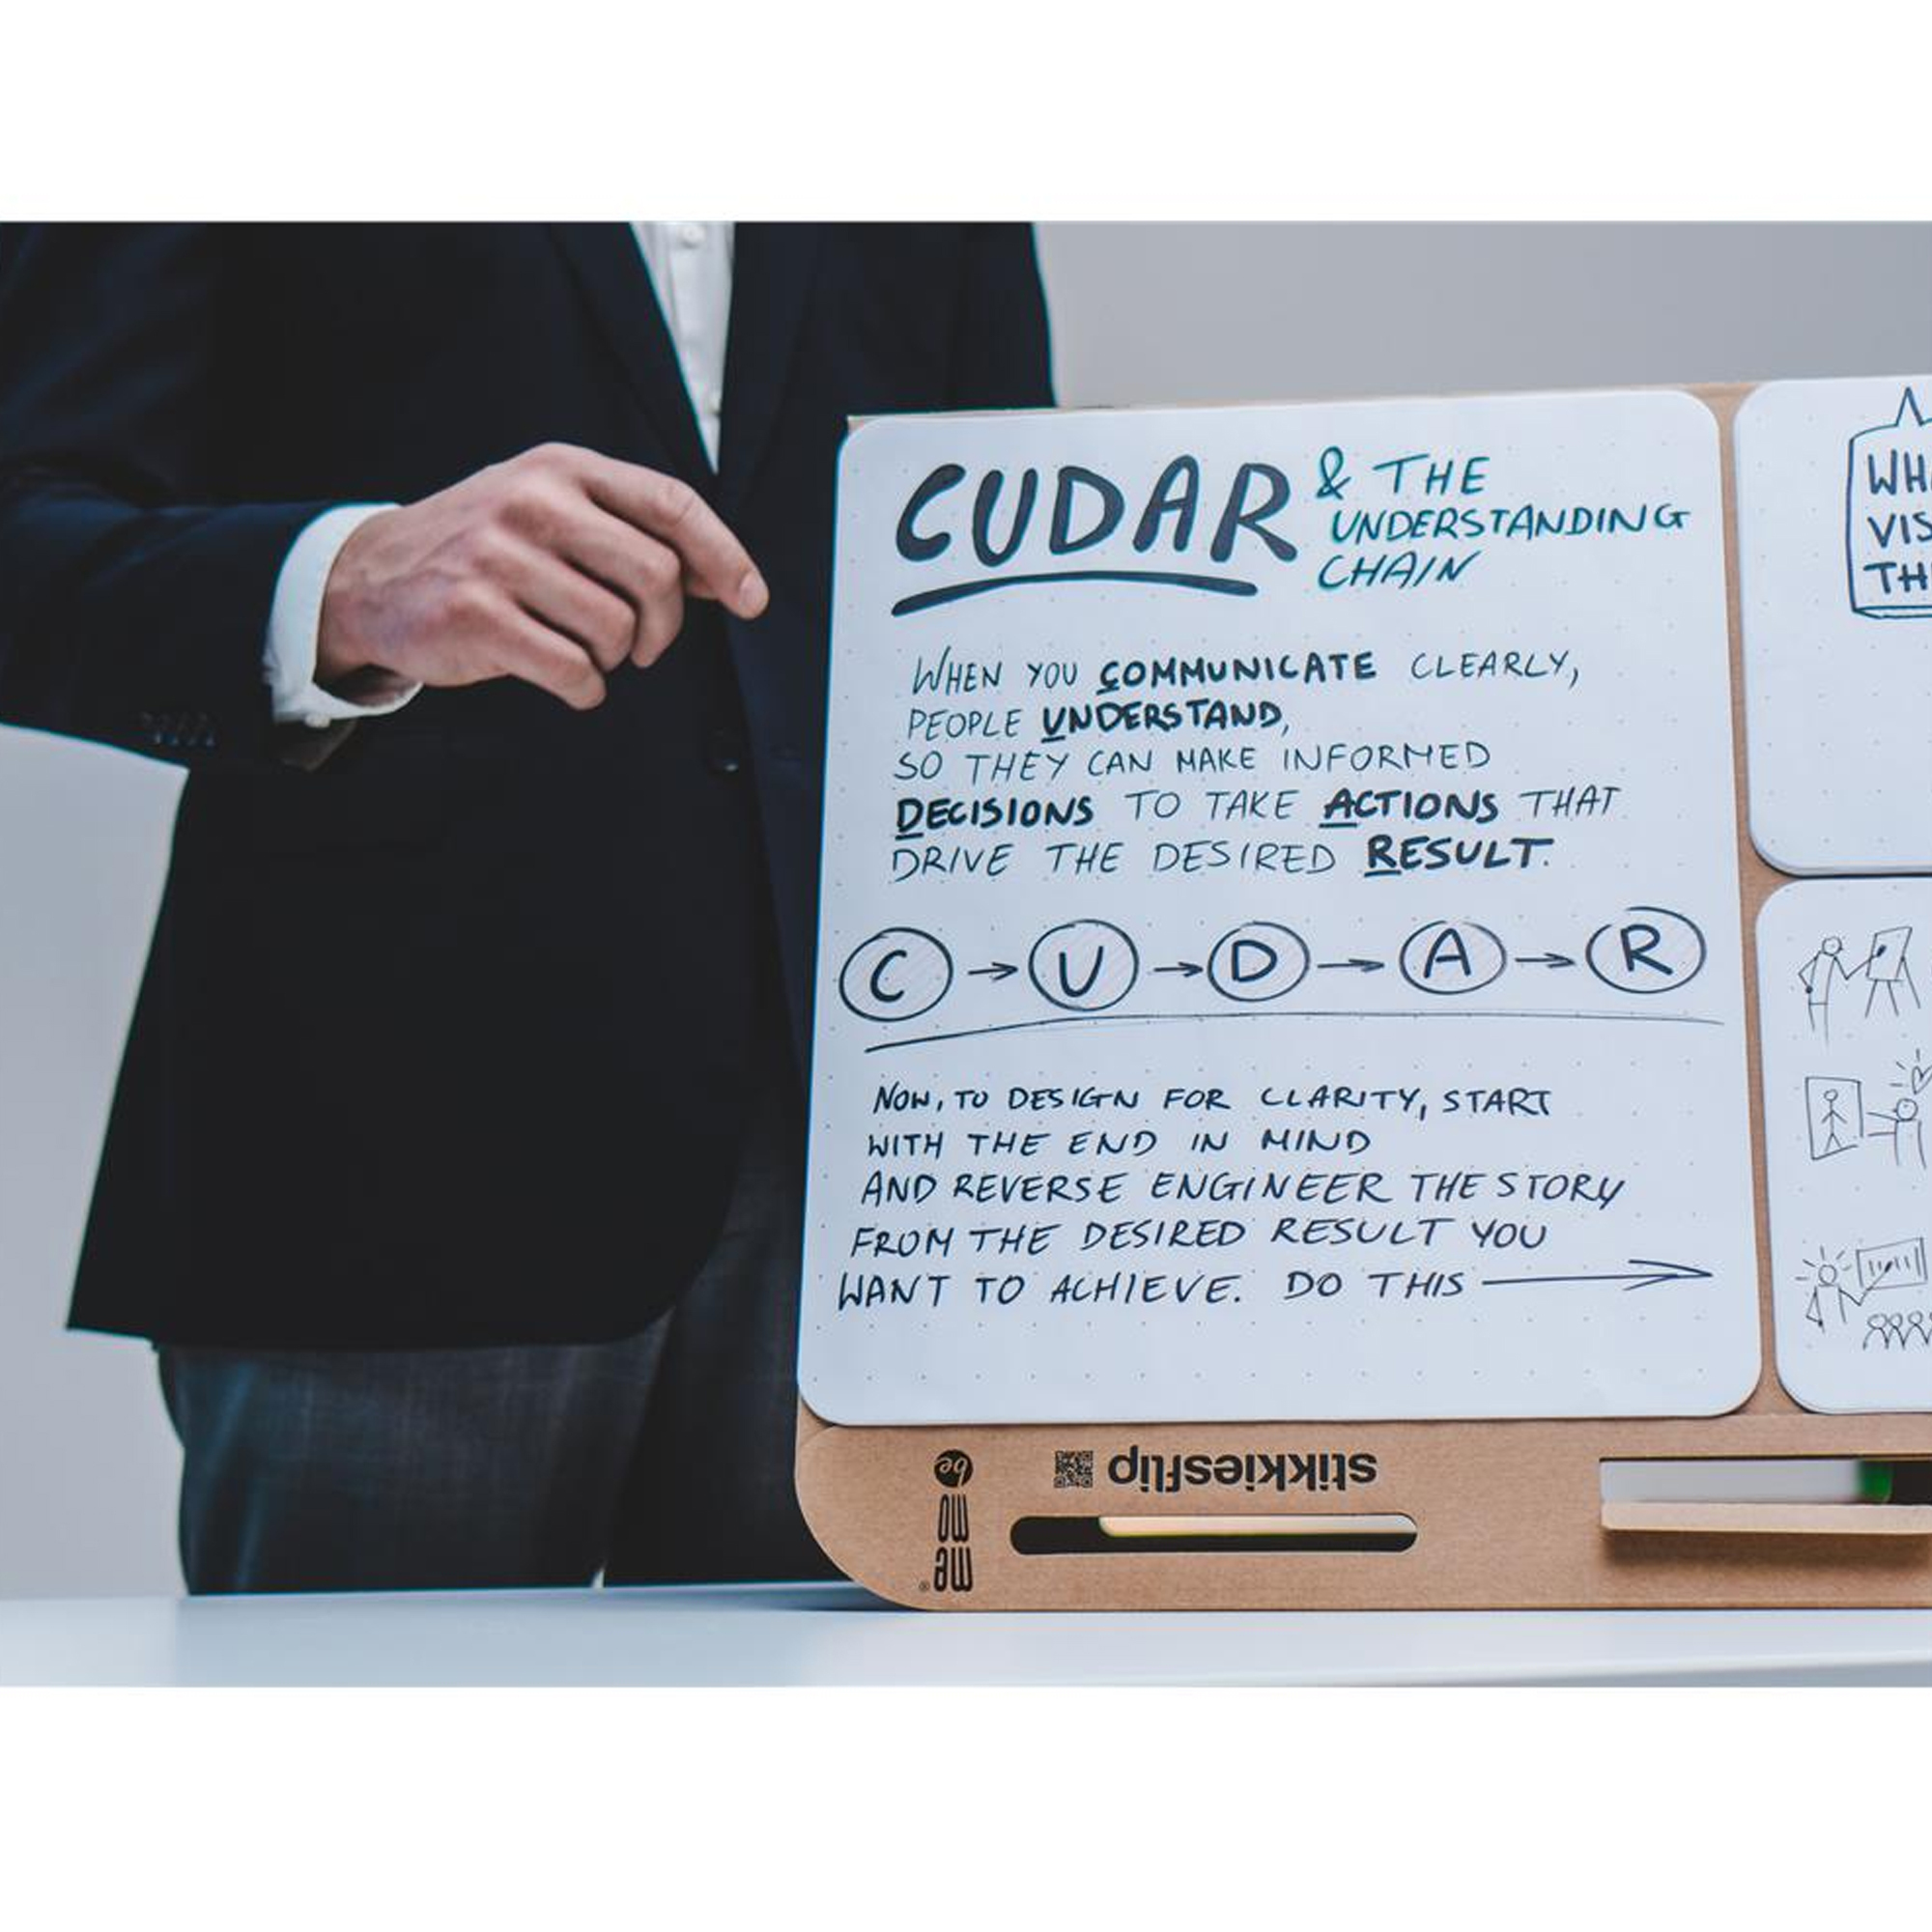 CUDAR & THE
UNDERSTANDING
CHAIN
WHEN YOU COMMUNICATE CLEARLY,
PEOPLE UNDERSTAND,
SO THEY CAN MAKE INFORMED
DECISIONS TO TAKE ACTIONS THAT
DRIVE THE DESIRED RESULT.
C → U → D → A → R
NOW, TO DESIGN FOR CLARITY, START
WITH THE END IN MIND
AND REVERSE ENGINEER THE STORY
FROM THE DESIRED RESULT YOU
WANT TO ACHIEVE. DO THIS →
stikkiesflip
me mo be